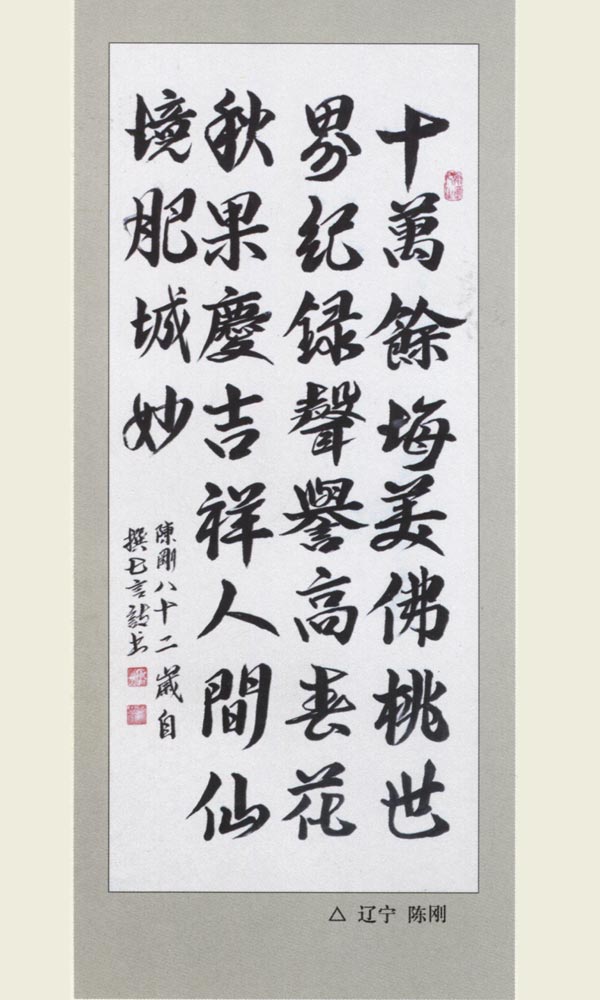 十萬餘海美佛桃世
界紀録聲譽高春花
秋果慶吉祥人間仙
境肥城妙
陳剛八十二歲自
撰七言詩書
△ 辽宁 陈刚